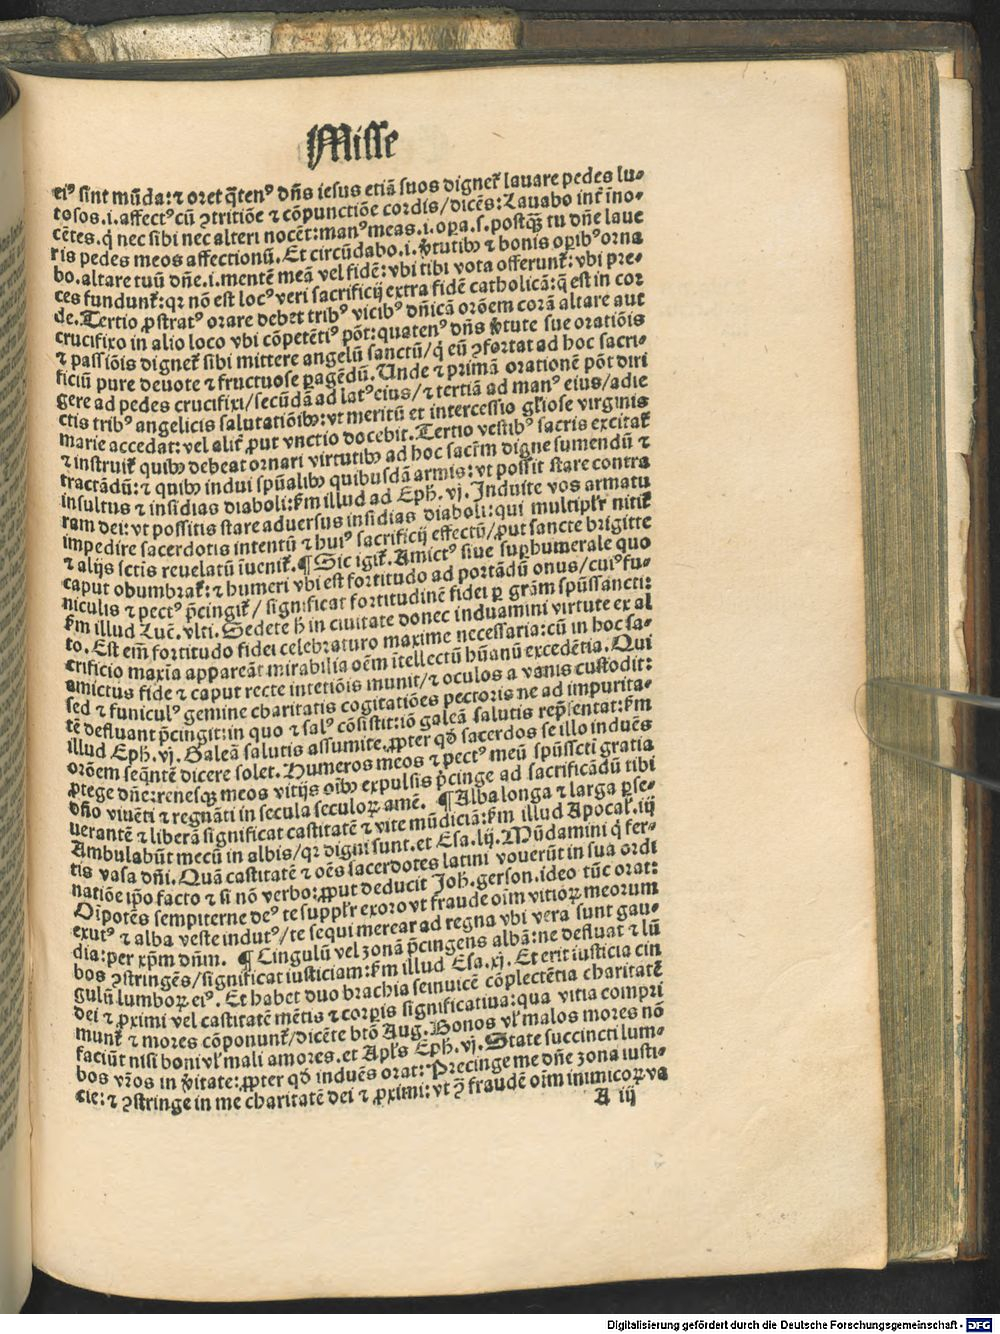 Misse
eiꝰ sint mūda: ⁊ oret q̄tenꝰ dn̄s iesus etiā suos dignet᷑ lauare pedes lu⸗
tosos .i. affectꝰ cū ↄtritiōe ⁊ cōpunctiōe cordis/ dicēs: Lauabo int᷑ īno⸗
cētes .q̇ nec sibi nec alteri nocēt: manꝰ meas .i. oꝑa .s. postqꝫ tu dn̄e laue
ris pedes meos affectionū. Et circūdabo .i. v̓tutibꝫ ⁊ bonis oꝑibꝰ orna
bo .altare tuū dn̄e .i. mentē meā vel fidē: vbi tibi vota offerunt᷑: vbi pre⸗
ces fundunt᷑: qꝛ nō est locꝰ veri sacrificij extra fidē catholicā: q̄ est in cor
de. Tertio ꝓstratꝰ orare debet tribꝰ vicibꝰ dn̄icā orōem corā altare aut
crucifixo in alio loco vbi cōpetētiꝰ pōt: quatenꝰ dn̄s v̓tute sue oratiōis
⁊ passiōis dignet᷑ sibi mittere angelū sanctū/ q̇ eū ↄfortat ad hoc sacri⸗
ficiū pure deuote ⁊ fructuose ꝑagēdū. Unde ⁊ primā orationē pōt diri
gere ad pedes crucifixi/ secūdā ad latꝰ eius/ ⁊ tertiā ad manꝰ eius/ adie
ctis tribꝰ angelicis salutatiōibꝫ: vt meritū et intercessio gl̓iose virginis
marie accedat: vel alit᷑ ꝓut vnctio docebit. Tertio vestibꝰ sacris excitat᷑
⁊ instruit᷑ quibꝫ debeat ornari virtutibꝫ ad hoc sacr̄m digne sumendū ⁊
tractādū: ⁊ quibꝫ indui spūalibꝫ quibusdā armis: vt possit stare contra
insultus ⁊ insidias diaboli: ẜm illud ad Eph̄. vj. Induite vos armatu
ram dei: vt possitis stare aduersus insidias diaboli: qui multipl̓r nitit᷑
impedire sacerdotis intentū ⁊ huiꝰ sacrificij effectū/ ꝓut sancte brigitte
⁊ alijs sctīs reuelatū īuenit᷑. ¶ Sic igit᷑. Amictꝰ siue suꝑhumerale quo
caput obumbrat᷑: ⁊ humeri vbi est fortitudo ad portādū onus/ cuiꝰ fu⸗
niculis ⁊ pectꝰ p̄cingit᷑/ significat fortitudinē fidei ꝑ grām spūssancti:
ẜm illud Luc̄. vlti. Sedete h̄ in ciuitate donec induamini virtute ex al
to. Est em̄ fortitudo fidei celebraturo maxime necessaria: cū in hoc sa⸗
crificio maxīa appareāt mirabilia oēm ītellectū hūanū excedētia. Qui
amictus fide ⁊ caput recte intētiōis munit/ ⁊ oculos a vanis custodit:
sed ⁊ funiculꝰ gemine charitatis cogitatiōes pectoris ne ad impurita⸗
tē defluant p̄cingit: in quo ⁊ salꝰ cōsistit: iō galeā salutis rep̄sentat: ẜm
illud Eph̄. vj. Galeā salutis assumite. ꝓpter qd̓ sacerdos se illo induēs
orōem seq̄ntē dicere solet. Humeros meos ⁊ pectꝰ meū spūsscti gratia
ꝓtege dn̄e: renesqꝫ meos vitijs oībꝫ expulsis p̄cinge ad sacrificādū tibi
dn̄o viuēti ⁊ regnāti in secula seculoꝝ amē. ¶ Alba longa ⁊ larga ꝑse⸗
uerantē ⁊ liberā significat castitatē ⁊ vite mūdiciā: ẜm illud Apocal̓. iij
Ambulabūt mecū in albis/ qꝛ digni sunt. et Esa. lij. Mūdamini q̇ fer⸗
tis vasa dn̄i. Quā castitatē ⁊ oēs sacerdotes latini vouerūt in sua ordi
natiōe ip̄o facto ⁊ si nō verbo: ꝓput deducit Joh̄. gerson. ideo tūc orat:
Oīpotēs sempiterne deꝰ te suppl̓r exoro vt fraude oīm vitioꝝ meorum
exutꝰ ⁊ alba veste indutꝰ/ te sequi merear ad regna vbi vera sunt gau⸗
dia: per xp̄m dn̄m. ¶ Cingulū vel zonā p̄cingens albā: ne defluat ⁊ lū
bos ↄstringēs/ significat iusticiam: ẜm illud Esa. xj. Et erit iusticia cin
gulū lumboꝝ eiꝰ. Et habet duo brachia seinuicē cōplectētia charitatē
dei ⁊ ꝓximi vel castitatē mētis ⁊ corꝑis significatiua: qua vitia compri
munt᷑ ⁊ mores cōponunt᷑/ dicēte btō Aug. Bonos vl̓ malos mores nō
faciūt nisi boni vl̓ mali amores. et Apl̓s Eph̄. vj. State succincti lum⸗
bos vr̄os in v̓itate: ꝓpter qd̓ induēs orat: Precinge me dn̄e zona iusti⸗
cie: ⁊ ↄstringe in me charitatē dei ⁊ ꝓximi: vt ꝫ fraudē oīm inimicoꝝ va
A iij
Digitalisierung gefördert durch die Deutsche Forschungsgemeinschaft - DFG